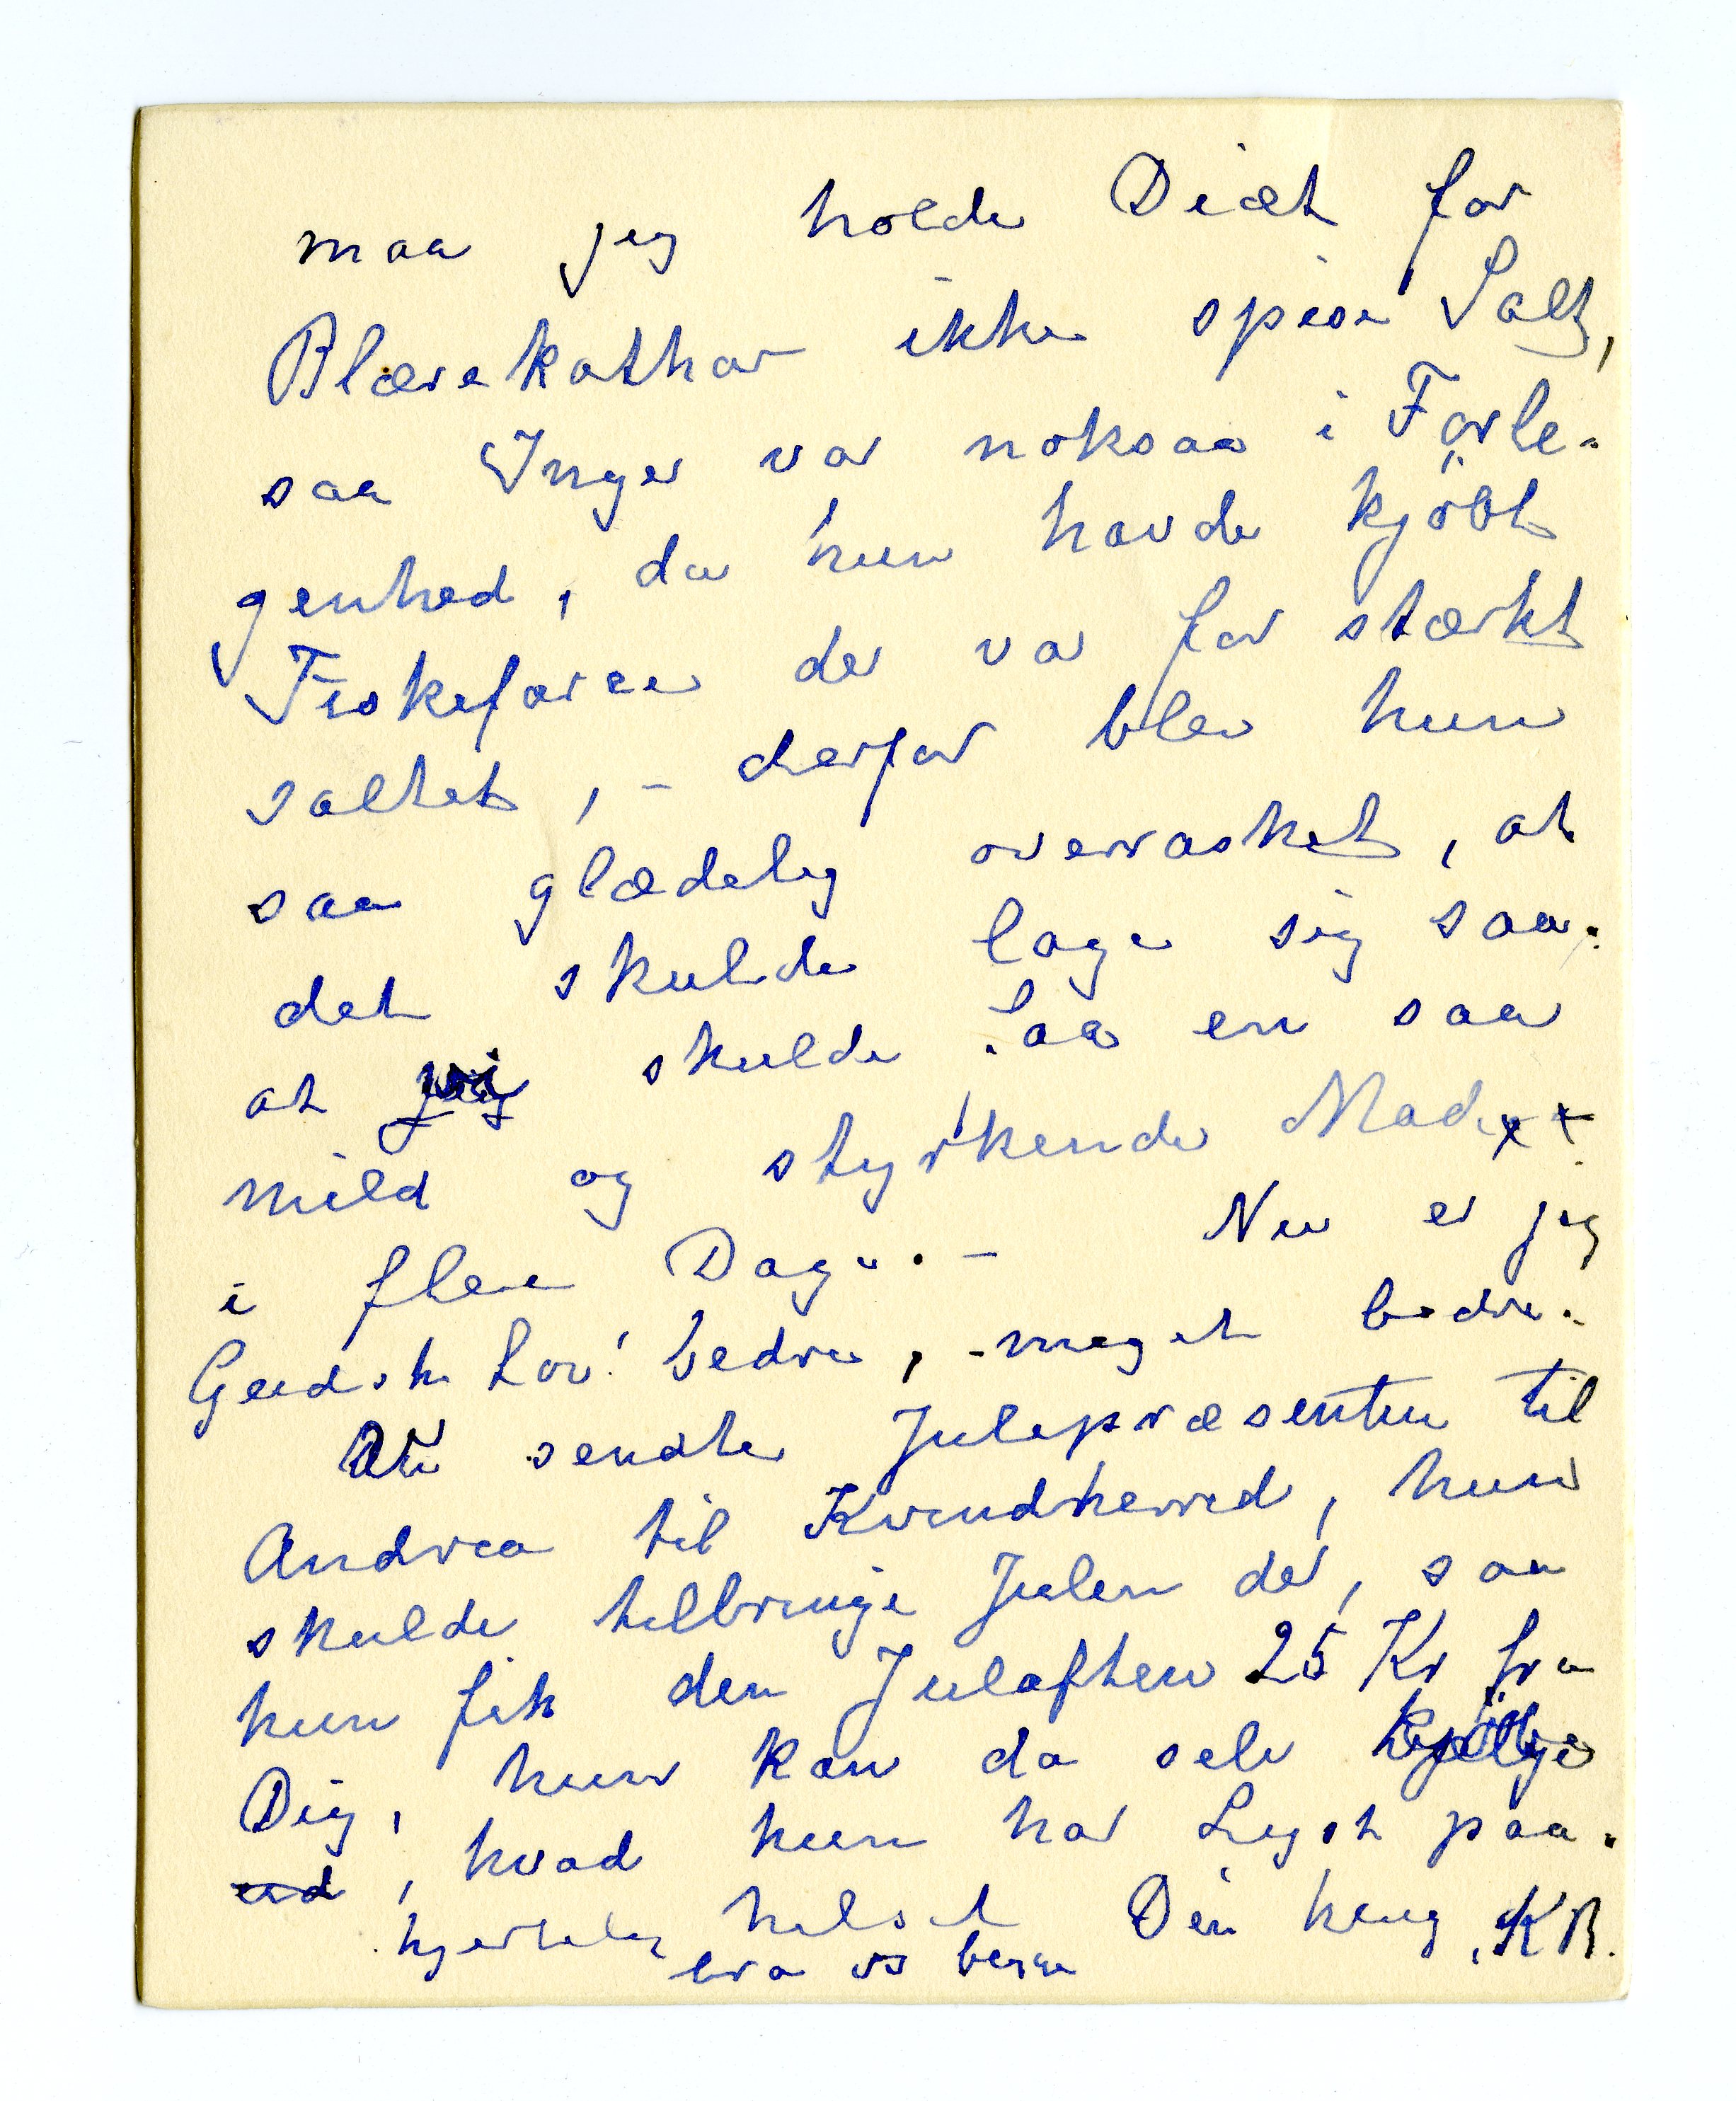 maa jeg holde Diæt for
Blærekathar ikke spise Salt,
saa Inger var noksaa i Forle-
genhed, da hun havde kjöbt
Fiskefarce der var for stærkt
saltet, - derfor blev hun
saa glædelig overrasket, at
det skulde lage sig saa.
at vi skulde faa en saa
mild og styrkende Mad
i flere Dage. - Nu er jeg
Gudske Lov! bedre, - meget bedre.
sendte Julepræsenten til
Andrea til Kvindherred, hun
skulde tilbringe Julen der, saa
hun fik den Juleaften 25 Kr fra
Dig, hun kan da selv kjöbe
, hvad hun har Lyst paa.
hjertelig hilset Din heng. KB.
fra os begge